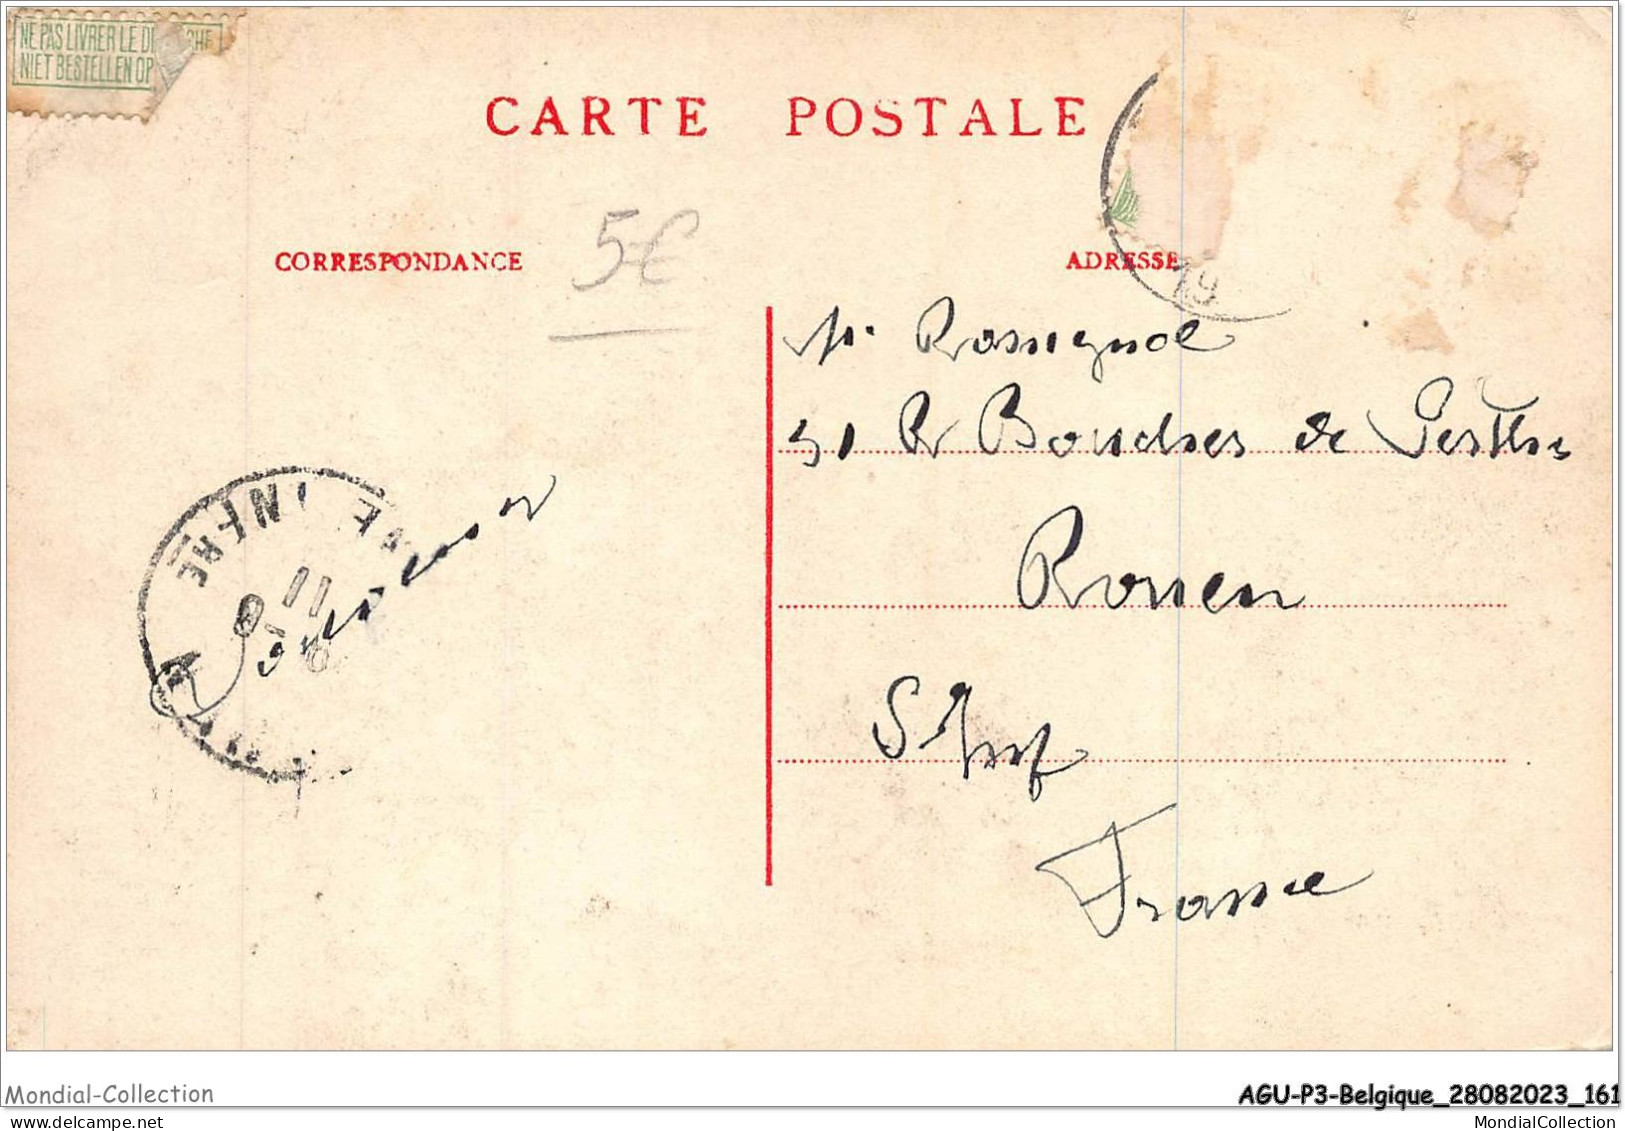 NE PAS LIVRER LE DI CHE
NIET BESTELLEN OP
CARTE POSTALE
CORRESPONDANCE
5€
ADRESSE
19
Mr Rossignol
51 R Bouches de Perthes
Rouen
S. Inf
France
INFRE
11
8
Mondial-Collection
AGU-P3-Belgique_28082023_161
MondialCollection